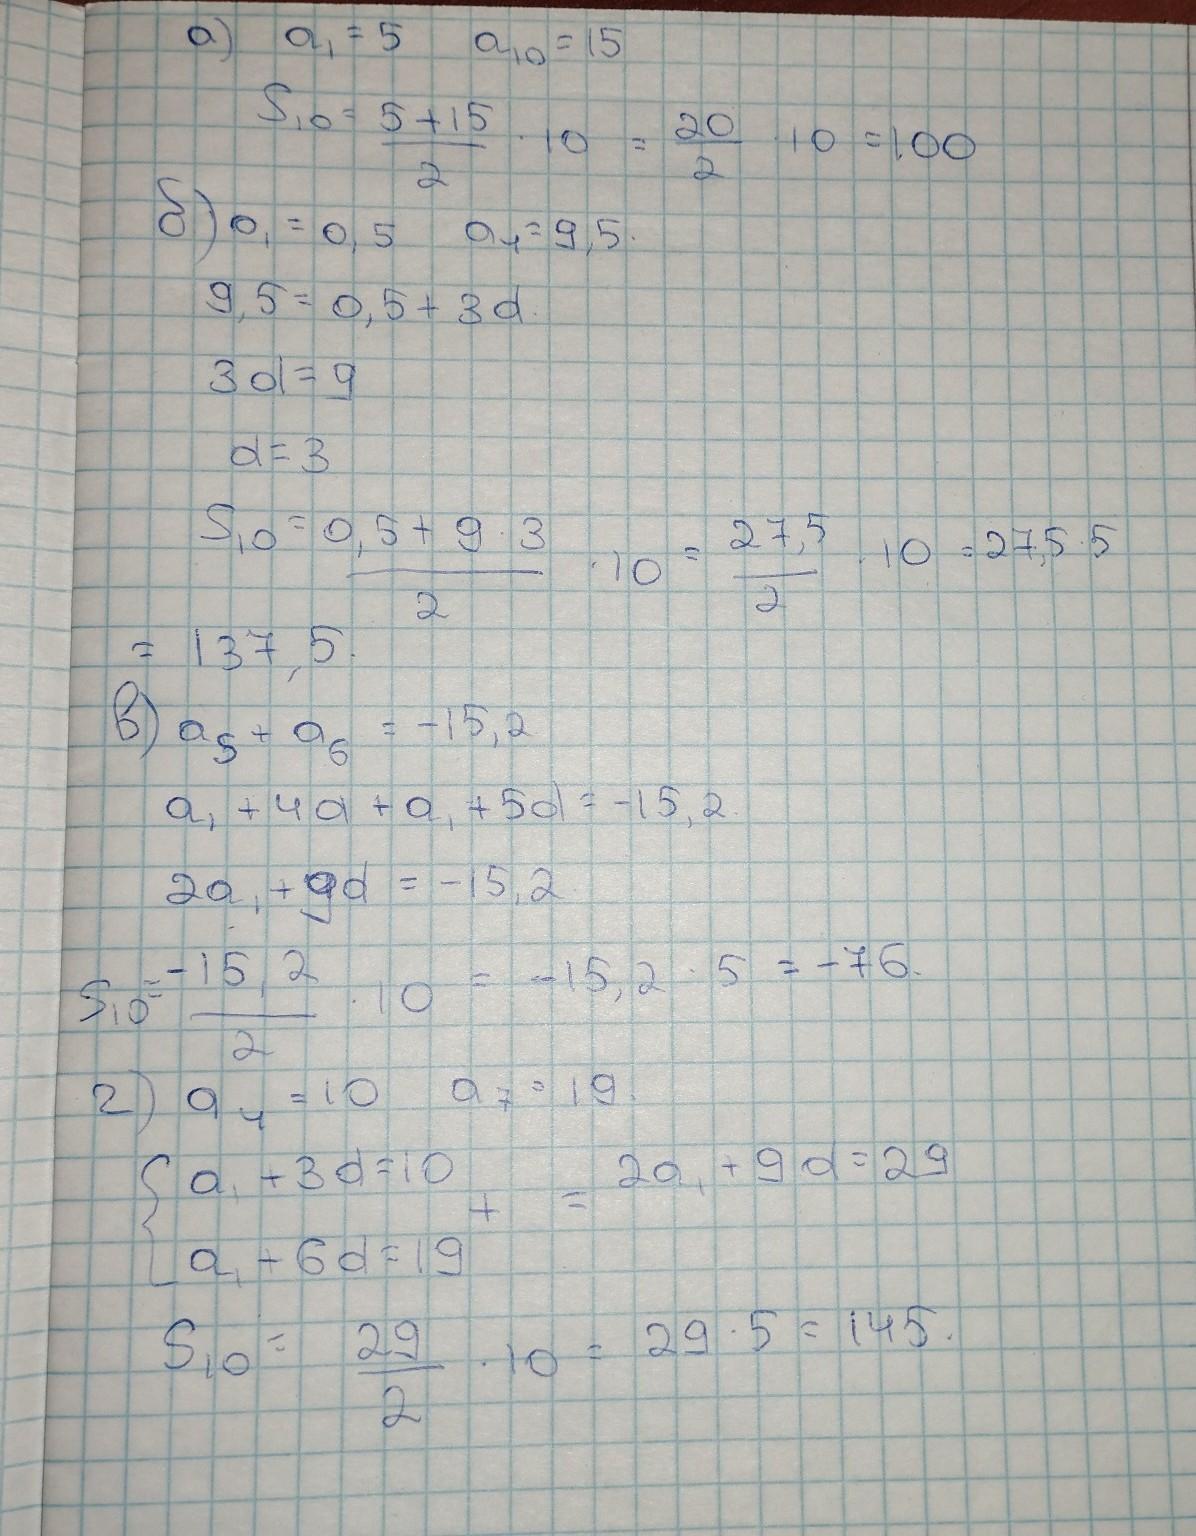 а) a₁ = 5 a₁₀ = 15
S₁₀ = (5+15)/2 · 10 = 20/2 · 10 = 100
б) a₁ = 0,5 a₄ = 9,5.
9,5 = 0,5 + 3d.
3d = 9
d = 3
S₁₀ = (0,5 + 9 · 3)/2 · 10 = 27,5/2 · 10 = 27,5 · 5
= 137,5.
в) a₅ + a₆ = -15,2
a₁ + 4d + a₁ + 5d = -15,2.
2a₁ + 9d = -15,2.
S₁₀ = -15,2/2 · 10 = -15,2 · 5 = -76.
г) a₄ = 10 a₇ = 19.
{ a₁ + 3d = 10 + = 2a₁ + 9d = 29
a₁ + 6d = 19
S₁₀ = 29/2 · 10 = 29 · 5 = 145.